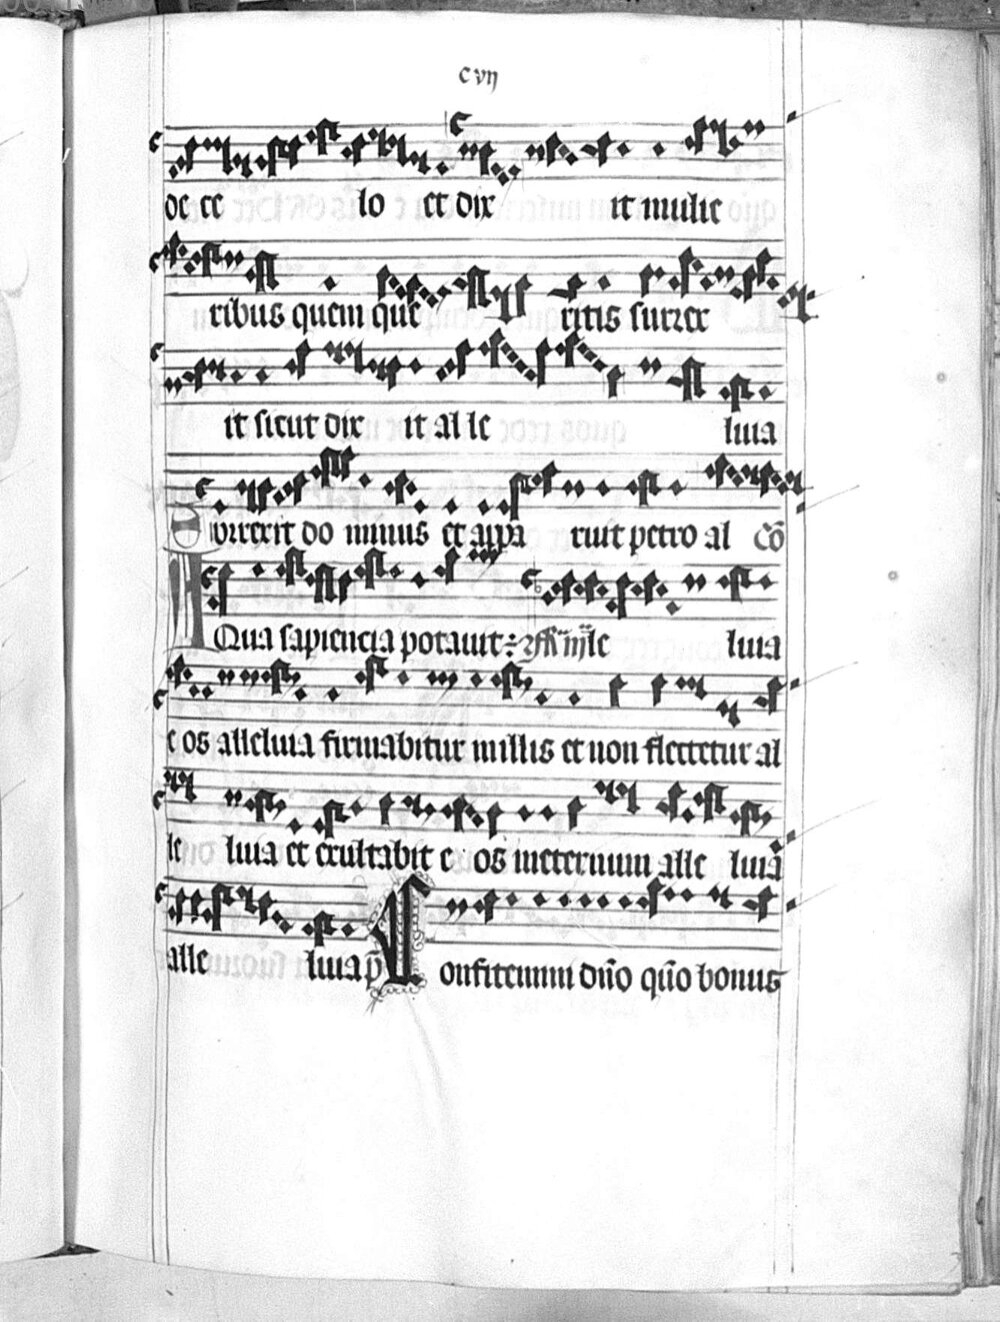 cvij
de ce lo et dix it mulie
ribus quem que ritis surrex
it sicut dix it al le luia
Surrexit do minus et appa ruit petro al Cō
Aqua sapiencia potauit le luia
e os alleluia firmabitur millis et non flectetur al
le luia et exultabit e os ineternum alle luia
alle luia p̄ Confitemini dn̄o qm̄o bonus